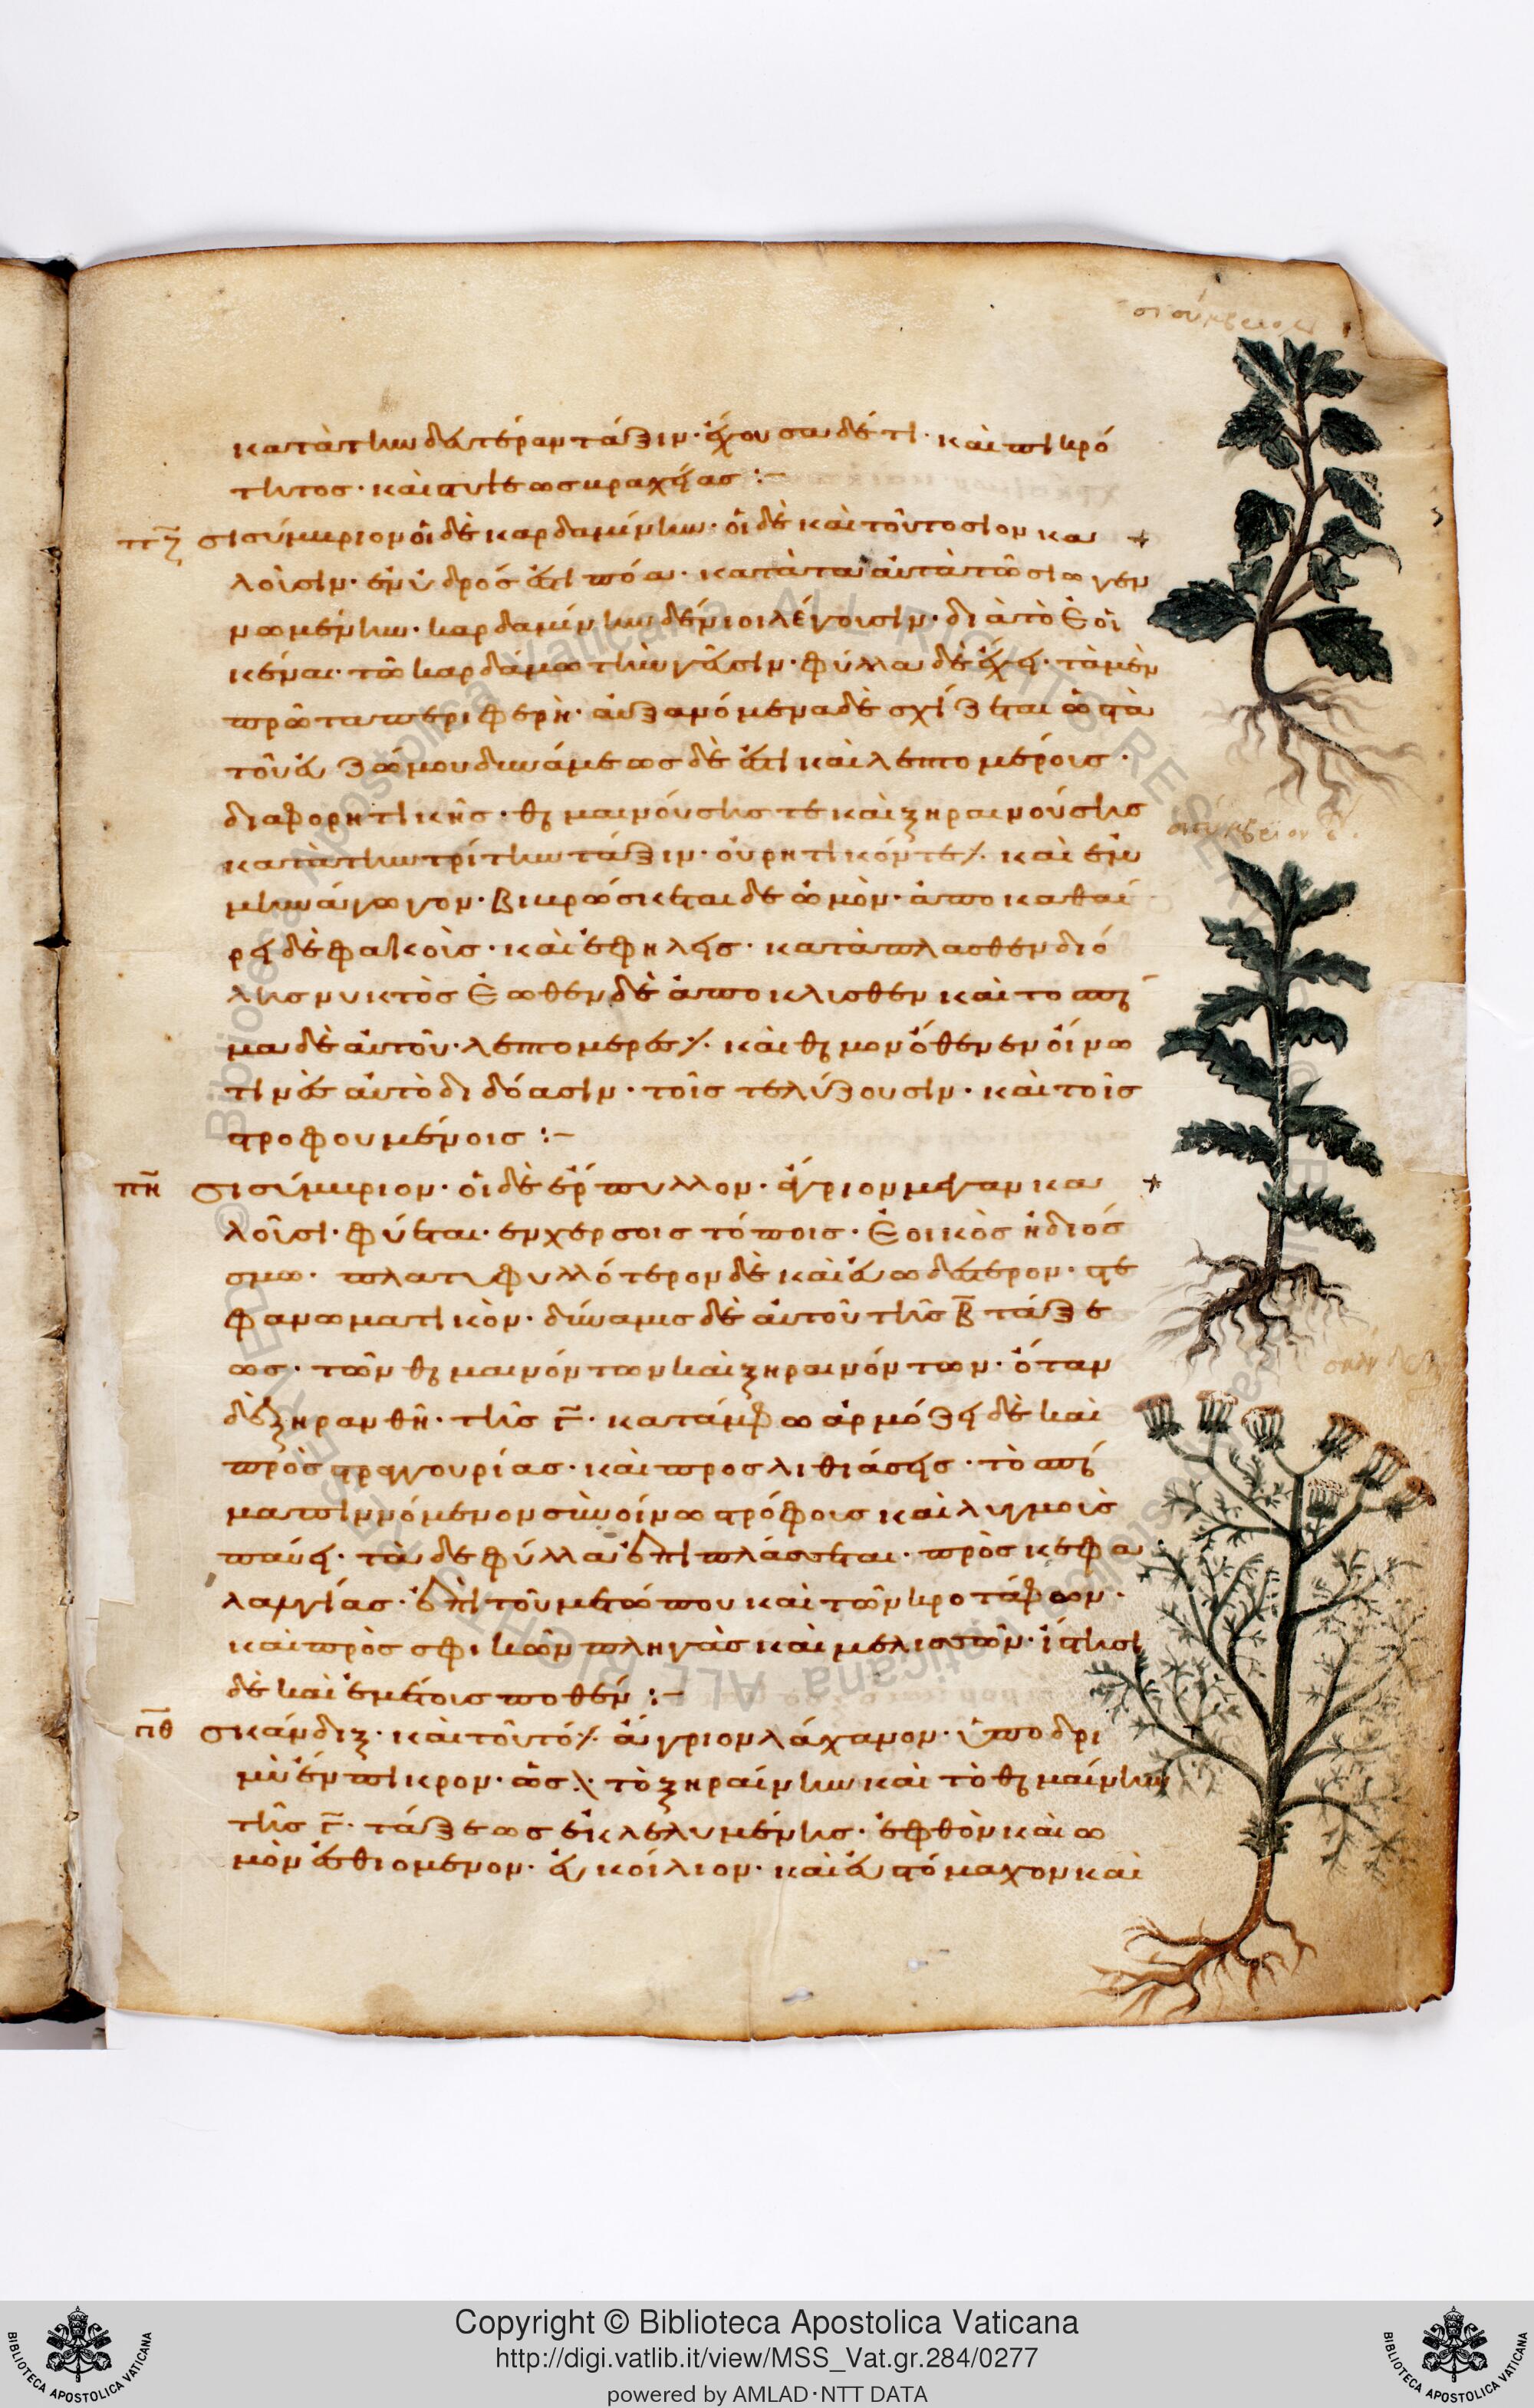 σισύμβριον
κατὰ τὴν δευτέραν τάξιν· ἔχουσα δέ τι· καὶ πικρό
τητος· καὶ αυτεωσκραχείας :-
πζ σισύμβριον οἱ δὲ καρδαμίνην· οἱ δὲ καὶ τοῦντο σίον κα
λοῦσιν· ἐνυδρός ἐστι πόα· κατὰ τὰ αὐτὰ τῶ σίω γεν
νωμένην· καρδαμίνην δ' ἔνιοι λέγουσιν· διὰ τὸ ἐοι
κέναι τῶ καρδάμω τὴν γεῦσιν· φύλλα δὲ ἔχει· τὰ μὲν
πρῶτα περιφερῆ· αὐξανόμενα δὲ σχίζεται ὡς τὰ
τοῦ εὐζώμου δυνάμεως δὲ ἐστὶ καὶ λεπτομέροις·
διαφορητικῆς· θερμαινούσης τε καὶ ξηραινούσης
κατὰ τὴν τρίτην τάξιν· οὐρητικόν τέ ἐστι· καὶ ἐμ
μηνάγωγον· βιβρώσκεται δὲ ὠμὸν· ἀποκαθαί
ρει δὲ φακοὺς· καὶ ἐφήλεις· κατὰπλασθὲν δι ὅ
λης νυκτὸς ἕωθεν δὲ ἀποκλισθὲν καὶ τὸ σπέρ
μα δὲ αὐτοῦ· λεπτομερές ἐστι· καὶ θερμὸν ὅθεν ἐν οἴνω
τινὲς αὐτὸ διδόασιν· τοῖς τε λύζουσιν· καὶ τοῖς
στροφουμένοις :-
σισύμβριον
πη σισύμβριον· οἱ δὲ ἕρπυλλον· ἄγριον μέγαν κα
λοῦσι· φύεται· ἐν χέρσοις τόποις· ἐοικὸς ἡδυόσ
σμω· πλατυφυλλότερον δὲ καὶ εὐωδέστερον· στε
φανωματικὸν· δύναμις δὲ αὐτοῦ τῆς β τάξε
ως· τῶν θερμαινόντων καὶ ξηραινόντων· ὅταν
δὲ ξηρανθῆ· τῆς γ· κατάμφω ἁρμόζει δὲ καὶ
πρὸς στραγγουρίας· καὶ προς λιθιάσεις· τὸ σπέρ
μα πινόμενον σὺν οἴνω στρόφους καὶ λυγμοὺς
παύει· τὰ δὲ φύλλα ἐπιπλάσσεται· πρὸς κεφα
λαλγίας· ἐπὶ τοῦ μετώπου καὶ τῶν κροτάφων·
καὶ πρὸς σφικῶν πληγὰς καὶ μελισσῶν· ἵστησι
δὲ καὶ ἐμέτους ποθέν :-
πθ σκάνδιξ· καὶ τοῦτό ἐστι ἄγριον λάχανον· ὑπόδρι
μὺ ἔνπικρον· ὡς εἶναι τὸ ξηραίνην καὶ τὸ θερμαίνην
τῆς γ· τάξεως ἐκλελυμένης· ἐφθὸν καὶ ω
μὸν ἐσθιόμενον· εὐκοίλιον· καὶ εὐστόμαχον καὶ
Copyright © Biblioteca Apostolica Vaticana
http://digi.vatlib.it/view/MSS_Vat.gr.284/0277
powered by AMLAD · NTT DATA
BIBLIOTECA APOSTOLICA VATICANA
BIBLIOTECA APOSTOLICA VATICANA